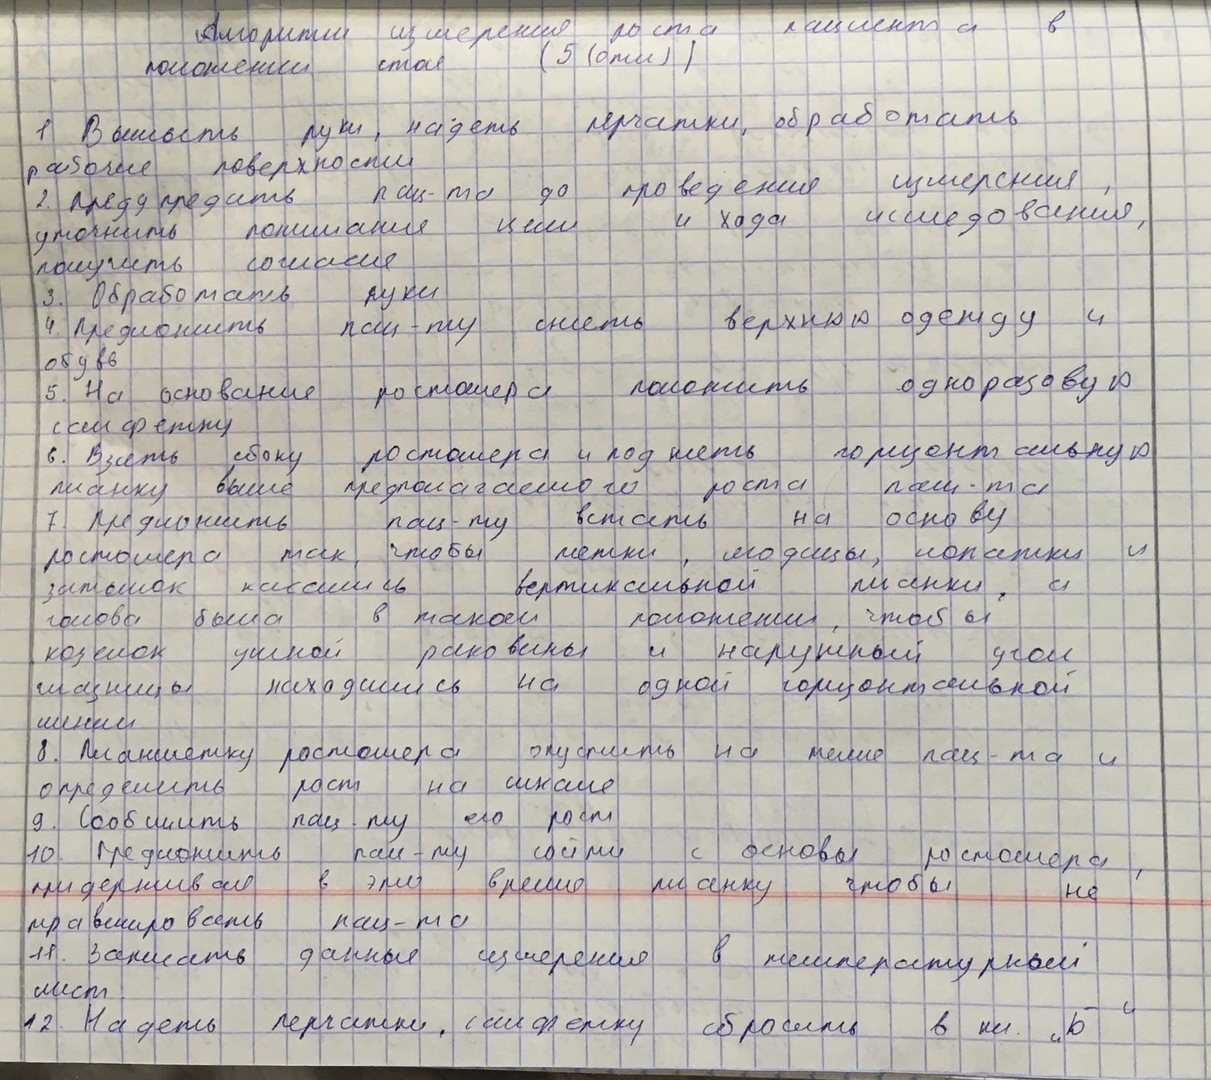 Алгоритм измерения роста пациента в
положении стоя
1 Вымыть руки, надеть перчатки, обработать
рабочие поверхности
2. Предупредить пац-та до проведения измерения,
уточнить понимание цели и хода исследования,
получить согласие
3. Обработать руки
4. Предложить пац-ту снять верхнюю одежду и
обувь
5. На основание ростомера положить одноразовую
салфетку
6. Встать сбоку ростомера и поднять горизонтальную
планку выше предполагаемого роста пац-та
7. Предложить пац-ту встать на основу
ростомера так, чтобы пятки, ягодицы, лопатки и
затылок касались вертикальной планки, а
голова была в таком положении, чтобы
козелок ушной раковины и наружный угол
глазницы находились на одной горизонтальной
линии
8. Планшетку ростомера опустить на темя пац-та и
определить рост на шкале
9. Сообщить пац-ту его рост
10. Предложить пац-ту сойти с основы ростомера,
придерживая в это время планку чтобы не
травмировать пац-та
11. Записать данные измерения в температурный
лист
12. Надеть перчатки, салфетку сбросить в кл. „Б"